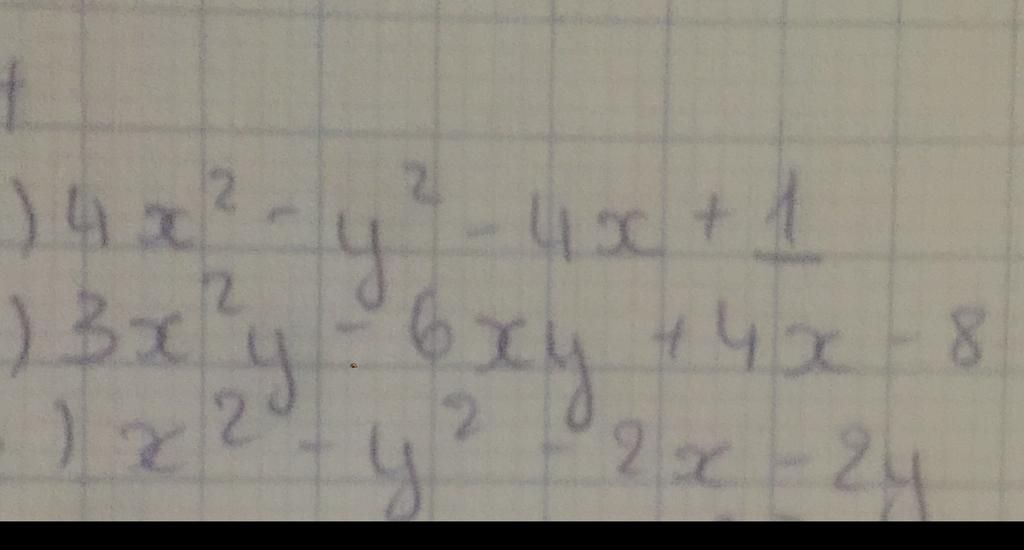 ) 4x² - y² - 4x + 1
) 3x²y - 6xy + 4x - 8
) x² - y² - 2x - 2y